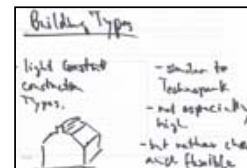 Building Types
light
construction
Types.
- similar to
Technopark
- not especially
high
- but rather
and flexible